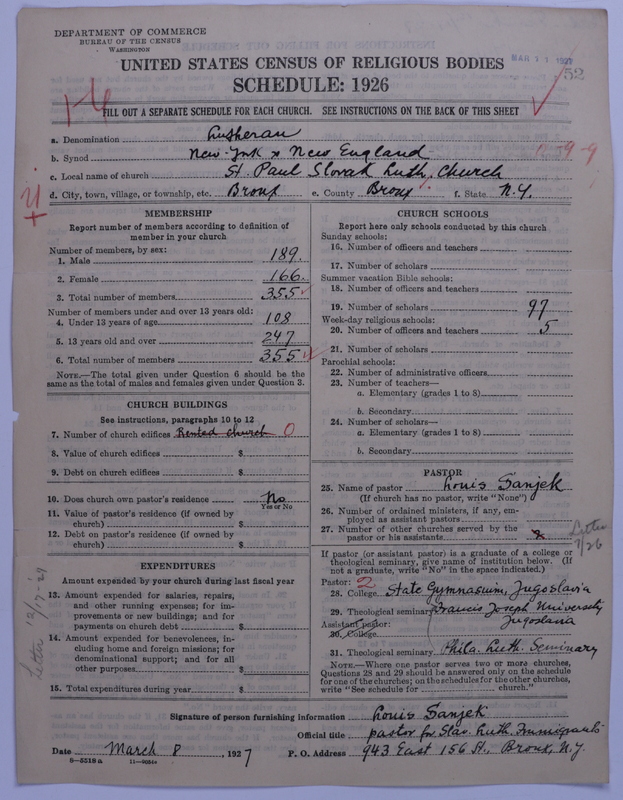 DEPARTMENT OF COMMERCE
BUREAU OF THE CENSUS
WASHINGTON
MAR 11 1927
52
UNITED STATES CENSUS OF RELIGIOUS BODIES
SCHEDULE: 1926
FILL OUT A SEPARATE SCHEDULE FOR EACH CHURCH. SEE INSTRUCTIONS ON THE BACK OF THIS SHEET
a. Denomination Lutheran
b. Synod New-York & New England
c. Local name of church St. Paul Slovak Luth. Church
d. City, town, village, or township, etc. Bronx e. County Bronx f. State N.Y.
MEMBERSHIP
Report number of members according to definition of
member in your church
Number of members, by sex:
1. Male 189.
2. Female 166.
3. Total number of members 355
Number of members under and over 13 years old:
4. Under 13 years of age 108
5. 13 years old and over 247
6. Total number of members 355
NOTE.—The total given under Question 6 should be
the same as the total of males and females given under Question 3.
CHURCH BUILDINGS
See instructions, paragraphs 10 to 12
7. Number of church edifices Rented church 0
8. Value of church edifices $
9. Debt on church edifices $
10. Does church own pastor's residence No
Yes or No
11. Value of pastor's residence (if owned by
church) $
12. Debt on pastor's residence (if owned by
church) $
EXPENDITURES
Amount expended by your church during last fiscal year
13. Amount expended for salaries, repairs,
and other running expenses; for im-
provements or new buildings; and for
payments on church debt $
14. Amount expended for benevolences, in-
cluding home and foreign missions; for
denominational support; and for all
other purposes $
15. Total expenditures during year $
CHURCH SCHOOLS
Report here only schools conducted by this church
Sunday schools:
16. Number of officers and teachers
17. Number of scholars
Summer vacation Bible schools:
18. Number of officers and teachers
19. Number of scholars 97
Week-day religious schools:
20. Number of officers and teachers 5
21. Number of scholars
Parochial schools:
22. Number of administrative officers
23. Number of teachers—
a. Elementary (grades 1 to 8)
b. Secondary
24. Number of scholars—
a. Elementary (grades 1 to 8)
b. Secondary
PASTOR
25. Name of pastor Louis Sanjek
(If church has no pastor, write "None")
26. Number of ordained ministers, if any, em-
ployed as assistant pastors
27. Number of other churches served by the
pastor or his assistants
Letter
If pastor (or assistant pastor) is a graduate of a college or
theological seminary, give name of institution below. (If
not a graduate, write "No" in the space indicated.)
Pastor: 2
28. College State Gymnasium, Jugoslavia
29. Theological seminary Francis Joseph University
Jugoslavia
Assistant pastor:
30. College
31. Theological seminary Phila. Luth. Seminary
NOTE.—Where one pastor serves two or more churches,
Questions 28 and 29 should be answered only on the schedule
for one of the churches; on the schedules for the other churches,
write "See schedule for church."
Letter 12/17-29
Signature of person furnishing information Louis Sanjek
Official title pastor for Slav. Luth. Immigrants
Date March 8, 1927 P. O. Address 943 East 156 St., Bronx, N.Y.
8—5518a